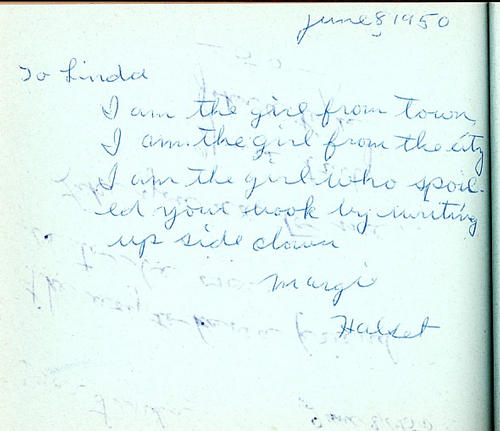 June 8 1950
To Linda
I am the girl from town,
I am the girl from the city
I am the girl who spoil-
ed your book by writing
up side down
Margi
Halset